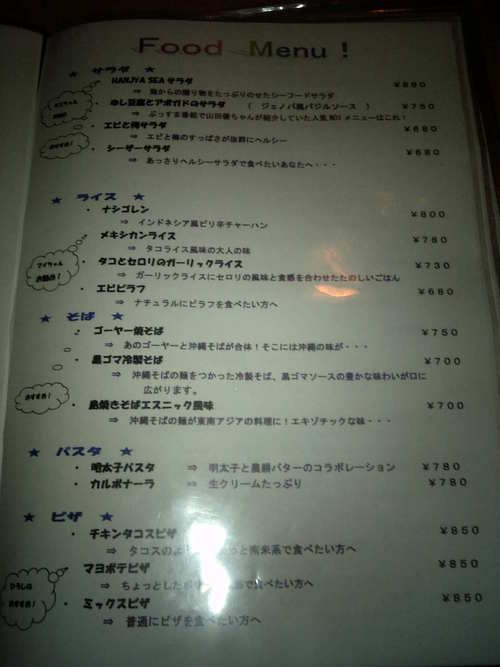 Food Menu !
★ サラダ ★
・ HANJYA SEAサラダ ¥880
⇒ 海からの贈り物をたっぷりのせたシーフードサラダ
ゆし豆腐とアボガドのサラダ ( ジェノバ風バジルソース ) ¥750
⇒ ぶっすま番組で山田優ちゃんが紹介していた人気NO1メニューはこれ!
・ エビと梅サラダ ¥680
⇒ エビと梅のすっぱさが抜群にヘルシー
おすすめ!
・ シーザーサラダ ¥680
⇒ あっさりヘルシーサラダで食べたいあなたへ・・・
★ ライス ★
・ ナシゴレン ¥800
⇒ インドネシア風ピリ辛チャーハン
・ メキシカンライス ¥780
⇒ タコライス風味の大人の味
マイちゃん
お勧め!
・ タコとセロリのガーリックライス ¥730
⇒ ガーリックライスにセロリの風味と食感を合わせたたのしいごはん
・ エビピラフ ¥680
⇒ ナチュラルにピラフを食べたい方へ
★ そば ★
・ ゴーヤー焼そば ¥750
⇒ あのゴーヤーと沖縄そばが合体!そこには沖縄の味が・・・
・ 黒ゴマ冷製そば ¥700
⇒ 沖縄そばの麺をつかった冷製そば、黒ゴマソースの豊かな味わいが口に
広がります。
おすすめ!
・ 島焼きそばエスニック風味 ¥700
⇒ 沖縄そばの麺が東南アジアの料理に!エキゾチックな味・・・
★ パスタ ★
・ 明太子パスタ ⇒ 明太子と農耕バターのコラボレーション ¥780
・ カルボナーラ ⇒ 生クリームたっぷり ¥780
★ ピザ ★
・ チキンタコスピザ ¥850
⇒ タコスのよ っと南米系で食べたい方へ
・ マヨポテピザ ¥850
⇒ ちょっとしたポ で食べたい方へ
ひろしは
おすすめ!
・ ミックスピザ ¥850
⇒ 普通にピザを食べたい方へ